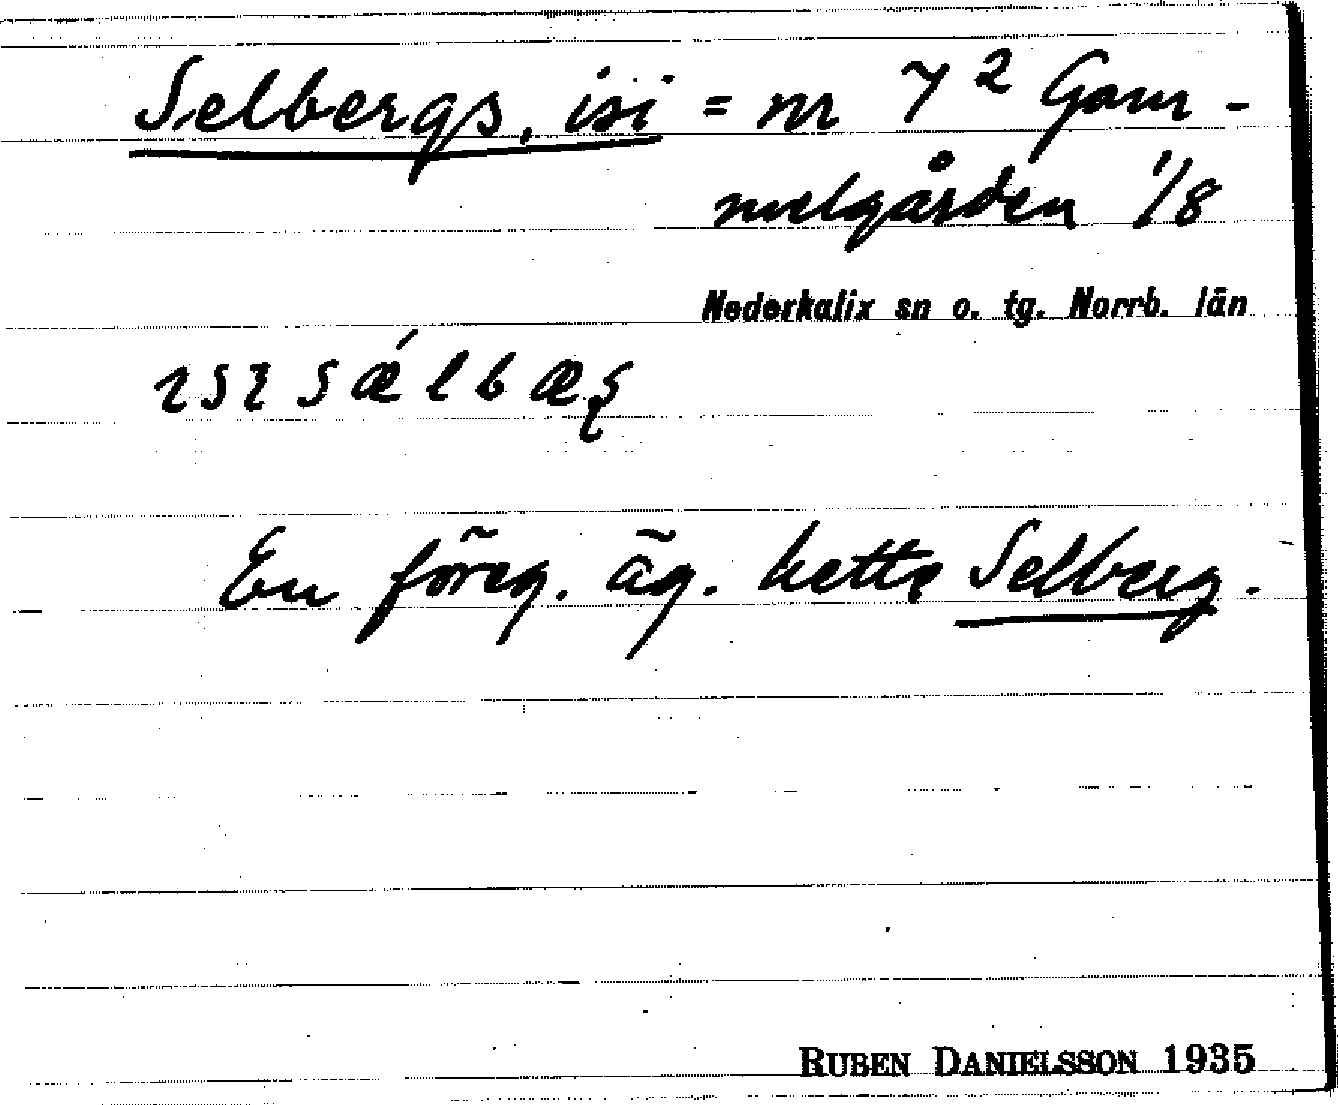 Selbergs, isi = nr 7² Gam-
melgården 1/8
Nederkalix sn o. tg. Norrb. län
En föreg. äg. hette Selberg.
RUBEN DANIELSSON 1935